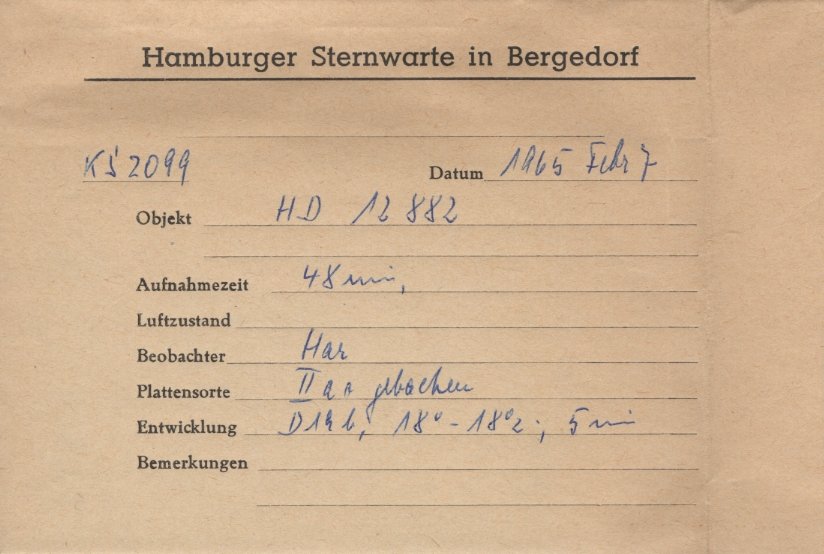 Hamburger Sternwarte in Bergedorf
KS 2099 Datum 1965 Febr 7
Objekt HD 12 882
Aufnahmezeit 48 min,
Luftzustand
Beobachter Har
Plattensorte IIa o gebacken
Entwicklung D19b, 18° - 18°2, 5 min
Bemerkungen